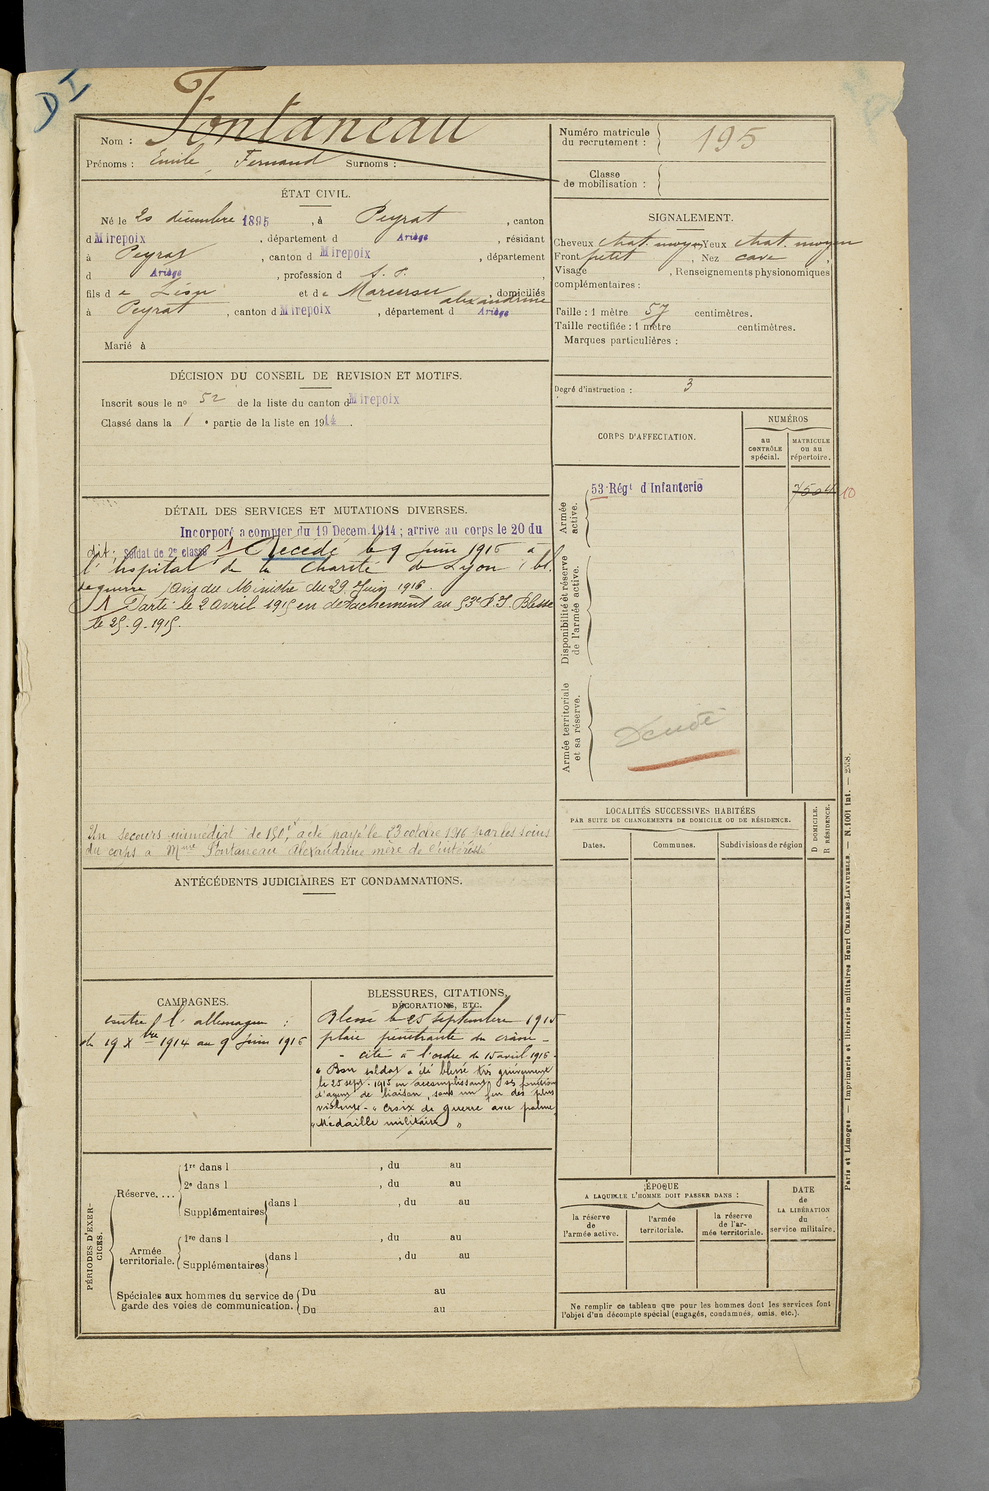 DI
Nom : Fontaneau
Prénoms : Emile Fernand Surnoms :
Numéro matricule du recrutement : 195
Classe de mobilisation :
ÉTAT CIVIL.
Né le 20 décembre 1895, à Peyrat, canton
d Mirepoix, département d Ariège, résidant
à Peyrat, canton d Mirepoix, département
d Ariège, profession d S. P.
fils de Léon et de Marcerou alexandrine, domiciliés
à Peyrat, canton d Mirepoix, département d Ariège
Marié à
SIGNALEMENT.
Cheveux chat. moyen Yeux chat. moyen
Front petit, Nez cave,
Visage, Renseignements physionomiques
complémentaires :
Taille : 1 mètre 57 centimètres.
Taille rectifiée : 1 mètre centimètres.
Marques particulières :
Degré d'instruction : 3
DÉCISION DU CONSEIL DE REVISION ET MOTIFS.
Inscrit sous le no 52 de la liste du canton d Mirepoix
Classé dans la 1e partie de la liste en 1914.
CORPS D'AFFECTATION.
NUMÉROS
au CONTRÔLE spécial.
MATRICULE ou au répertoire.
Armée active.
53 Régt d'Infanterie
7504 10
Disponibilité et réserve de l'armée active.
Armée territoriale et sa réserve.
DÉTAIL DES SERVICES ET MUTATIONS DIVERSES.
Incorporé a compter du 19 Decem. 1914 ; arrive au corps le 20 du
dit, Soldat de 2e classe 1 Decédé le 9 Juin 1916 à
l'hospital de la Charité de Lyon, bl.
de guerre, Avis du Ministre du 29 Juin 1916.
1 Parti le 2 avril 1915 en detachement au 53e R.I. Blessé
le 25-9-1915.
Un secours immédiat de 150f, a été payé le 23 octobre 1916 par les soins
du corps a Mme Fontaneau Alexandrine mère de l'intéressé
LOCALITÉS SUCCESSIVES HABITÉES
PAR SUITE DE CHANGEMENTS DE DOMICILE OU DE RÉSIDENCE.
Dates.
Communes.
Subdivisions de région
D DOMICILE.
R RÉSIDENCE.
ANTÉCÉDENTS JUDICIAIRES ET CONDAMNATIONS.
CAMPAGNES.
contre l'allemagne :
du 19 Xbre 1914 au 9 Juin 1916
BLESSURES, CITATIONS,
DÉCORATIONS, ETC.
Blessé le 25 septembre 1915
plaie pénétrante du crâne -
- cité à l'ordre du 15 avril 1916 -
« Bon soldat a été blessé très grièvement
le 25 sept. 1915 en accomplissant ses fonctions
d'agent de liaison, sous un feu des plus
violents - « croix de guerre avec palme
« Médaille militaire »
PÉRIODES D'EXERCICES.
Réserve....
1re dans l , du au
2e dans l , du au
Supplémentaires dans l , du au
Armée territoriale.
1re dans l , du au
Supplémentaires dans l , du au
Spéciales aux hommes du service de garde des voies de communication.
Du au
Du au
ÉPOQUE
A LAQUELLE L'HOMME DOIT PASSER DANS :
la réserve de l'armée active.
l'armée territoriale.
la réserve de l'armée territoriale.
DATE de LA LIBÉRATION du service militaire.
Ne remplir ce tableau que pour les hommes dont les services font
l'objet d'un décompte spécial (engagés, condamnés, omis, etc.).
Paris et Limoges. — Imprimerie et librairie militaires Henri CHARLES-LAVAUZELLE. — N. 1001 int. — 2558.